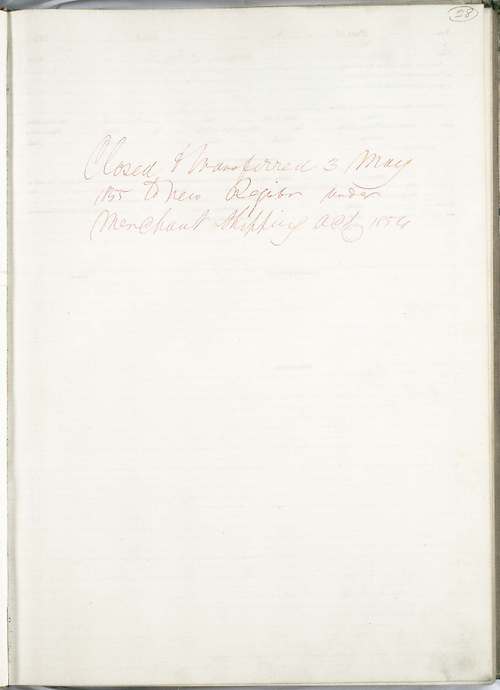 28
Closed & Transferred 3 May
1855 to new Register under
Merchant Shipping Act 1854